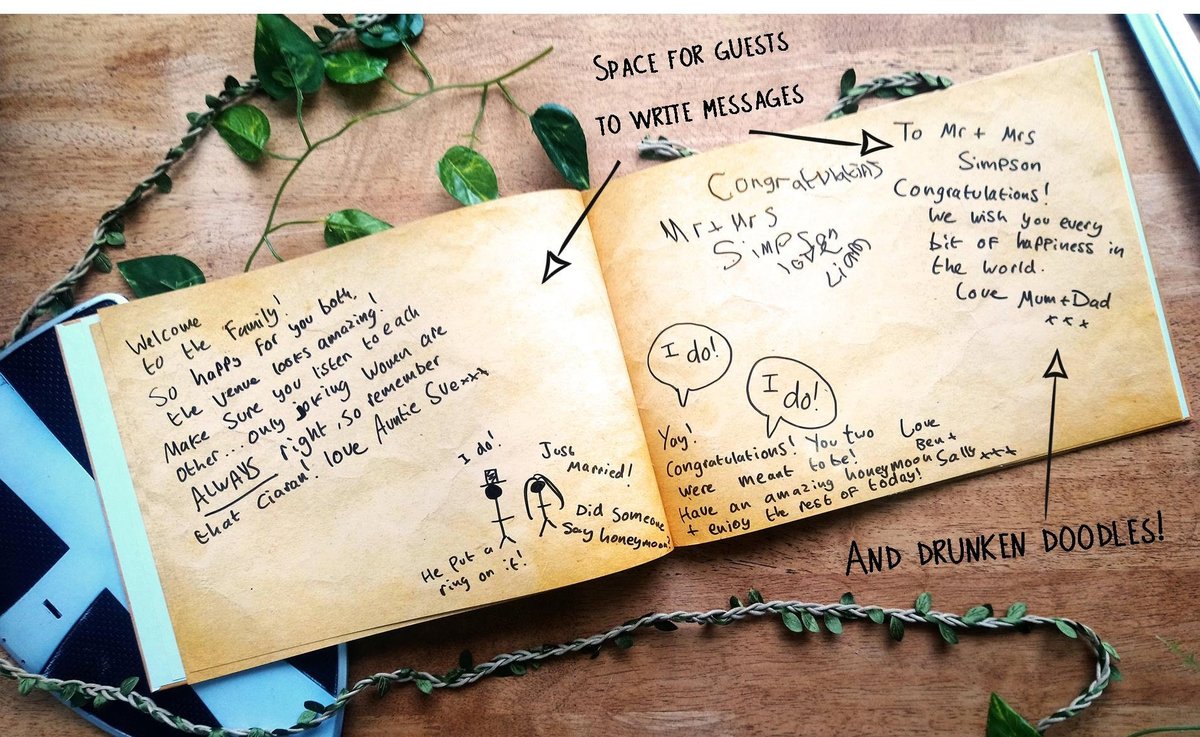 SPACE FOR GUESTS
TO WRITE MESSAGES
Welcome
to the Family!
So happy for you both,
the venue looks amazing!
Make sure you listen to each
other... only joking Women are
ALWAYS right, so remember
that Ciaran! love Auntie Sue xxx
I do!
Just
Married!
Did someone
say honeymoon?
He Put a
ring on it!
Congratulations
Mr + Mrs
Simpson
love
Liam
To Mr + Mrs
Simpson
Congratulations!
We wish you every
bit of happiness in
the world.
Love Mum + Dad
x x x
I do!
I do!
Yay!
Congratulations! You two
were meant to be!
Have an amazing honeymoon
+ enjoy the rest of today!
Love
Ben +
Sally xxx
AND DRUNKEN DOODLES!